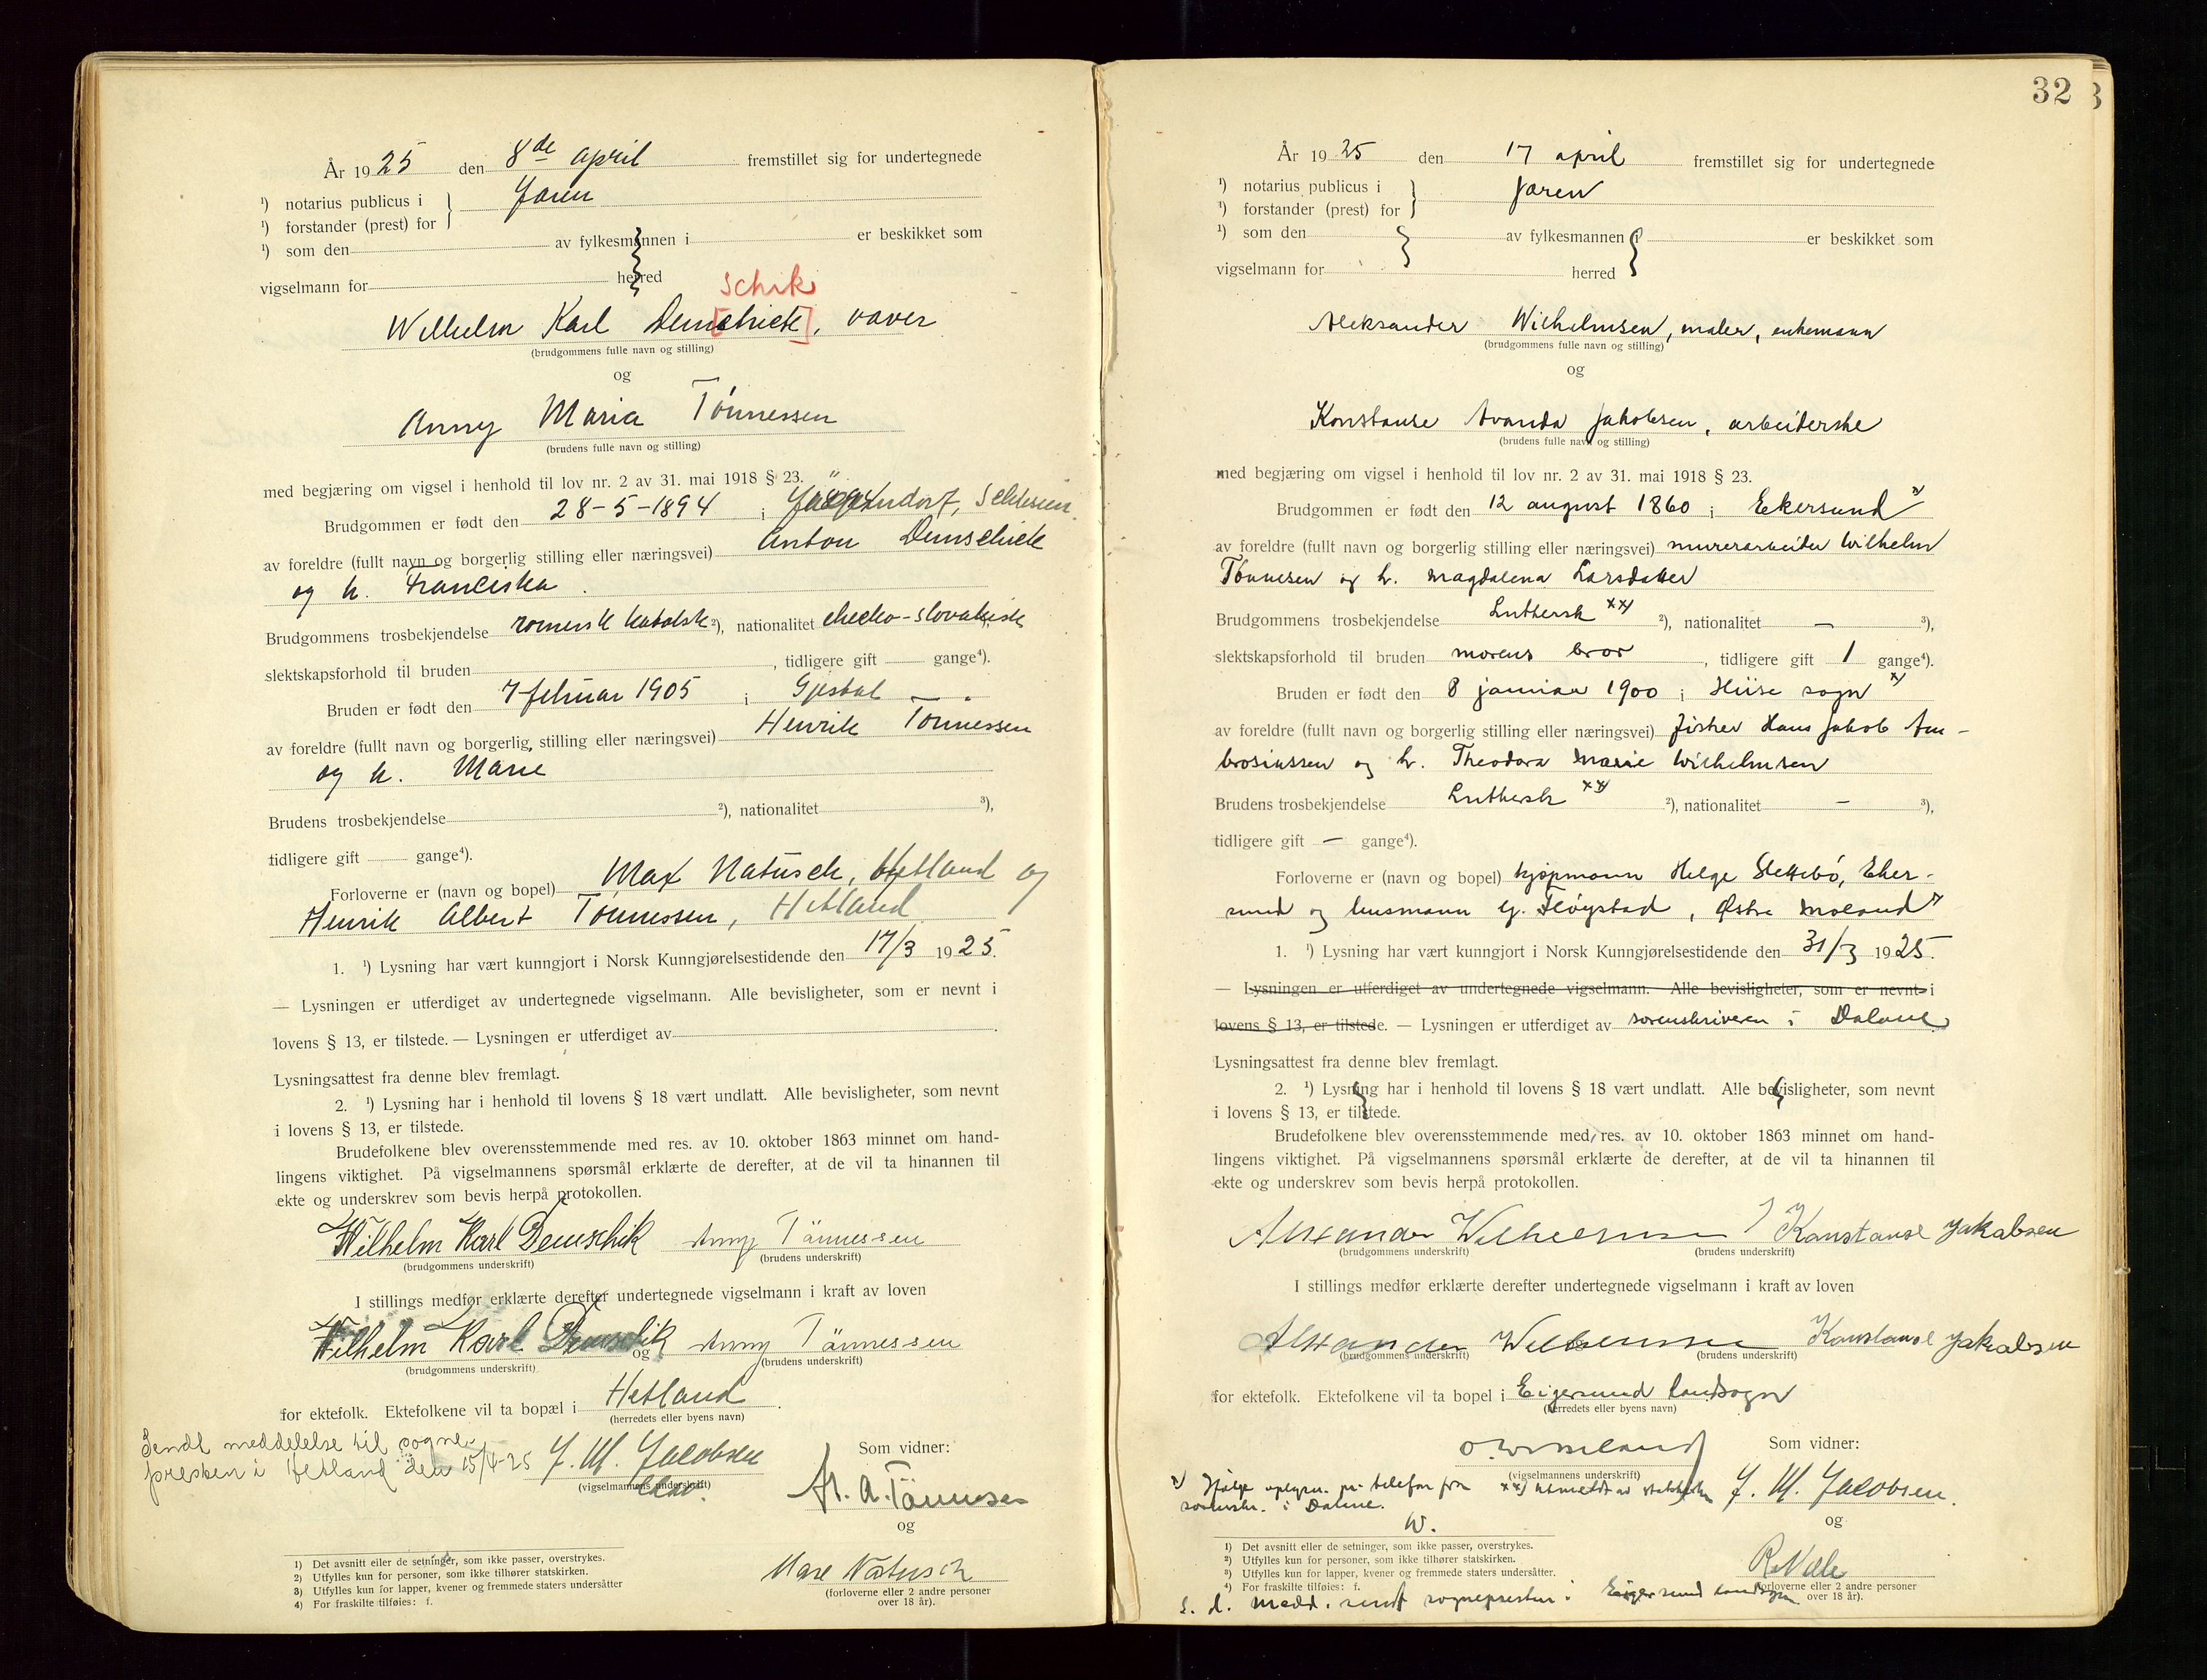 År 1925 den 8de april fremstillet sig for undertegnede
¹) notarius publicus i } Jæren
¹) forstander (prest) for
¹) som den av fylkesmannen i er beskikket som
vigselmann for herred
schik
Wilhelm Karl Dem[chick], væver
(brudgommens fulle navn og stilling)
og
Anny Maria Tönnessen
(brudens fulle navn og stilling)
med begjæring om vigsel i henhold til lov nr. 2 av 31. mai 1918 § 23.
Brudgommen er født den 28-5-1894 i Jägerndorf, Schlesien
av foreldre (fullt navn og borgerlig stilling eller næringsvei) Anton Demschick
og h. Franciska.
Brudgommens trosbekjendelse romersk katolsk ²), nationalitet checko-slovakisk
slektskapsforhold til bruden , tidligere gift gange⁴).
Bruden er født den 7 februar 1905 i Gjesdal — .
av foreldre (fullt navn og borgerlig stilling eller næringsvei) Henrik Tönnessen
og h. Marie
Brudens trosbekjendelse ²), nationalitet ³),
tidligere gift gange⁴).
Forloverne er (navn og bopel) Max Natusch, Hetland og
Henrik Albert Tönnessen, Hetland
1. ¹) Lysning har vært kunngjort i Norsk Kunngjørelsestidende den 17/3 1925.
— Lysningen er utferdiget av undertegnede vigselmann. Alle bevisligheter, som er nevnt i
lovens § 13, er tilstede. — Lysningen er utferdiget av .
Lysningsattest fra denne blev fremlagt.
2. ¹) Lysning har i henhold til lovens § 18 vært undlatt. Alle bevisligheter, som nevnt
i lovens § 13, er tilstede.
Brudefolkene blev overensstemmende med res. av 10. oktober 1863 minnet om hand-
lingens viktighet. På vigselmannens spørsmål erklærte de derefter, at de vil ta hinannen til
ekte og underskrev som bevis herpå protokollen.
Wilhelm Karl Demschik Anny Tännessen
(brudgommens underskrift) (brudens underskrift)
I stillings medfør erklærte derefter undertegnede vigselmann i kraft av loven
Wilhelm Karl Demschik og Anny Tännessen
(brudgommens underskrift) (brudens underskrift)
for ektefolk. Ektefolkene vil ta bopæl i Hetland .
(herredets eller byens navn)
Sendt meddelelse til sogne-
presten i Hetland den 15/4-25
J. M. Jacobsen Som vidner:
(vigselmannens underskrift)
H. A. Tännessen
og
Max Natusch
(forloverne eller 2 andre personer
over 18 år).
1) Det avsnitt eller de setninger, som ikke passer, overstrykes.
2) Utfylles kun for personer, som ikke tilhører statskirken.
3) Utfylles kun for lapper, kvener og fremmede staters undersåtter
4) For fraskilte tilføies: f.
32
År 1925 den 17 april fremstillet sig for undertegnede
¹) notarius publicus i } Jæren
¹) forstander (prest) for
¹) som den av fylkesmannen i er beskikket som
vigselmann for herred
Aleksander Wilhelmsen, maler, enkemann
(brudgommens fulle navn og stilling)
og
Konstanse Avanda Jakobsen, arbeiderske
(brudens fulle navn og stilling)
med begjæring om vigsel i henhold til lov nr. 2 av 31. mai 1918 § 23.
Brudgommen er født den 12 august 1860 i Ekersund x)
av foreldre (fullt navn og borgerlig stilling eller næringsvei) murerarbeider Wilhelm
Tönnesen og h. Magdalena Larsdatter
Brudgommens trosbekjendelse Luthersk xx) ²), nationalitet — ³),
slektskapsforhold til bruden morens bror , tidligere gift 1 gange⁴).
Bruden er født den 8 januar 1900 i Hiise sogn x)
av foreldre (fullt navn og borgerlig stilling eller næringsvei) fisker Hans Jakob Am-
brosiussen og h. Theodora Marie Wilhelmsen
Brudens trosbekjendelse Luthersk xx) ²), nationalitet — ³),
tidligere gift — gange⁴).
Forloverne er (navn og bopel) kjøpmann Helge Slettebö, Eker-
sund og husmann G. Fløystad, Østre Moland x)
1. ¹) Lysning har vært kunngjort i Norsk Kunngjørelsestidende den 31/3 1925.
— Lysningen er utferdiget av undertegnede vigselmann. Alle bevisligheter, som er nevnt i
lovens § 13, er tilstede. — Lysningen er utferdiget av sorenskriveren i Dalane
Lysningsattest fra denne blev fremlagt.
2. ¹) Lysning har i henhold til lovens § 18 vært undlatt. Alle bevisligheter, som nevnt
i lovens § 13, er tilstede.
Brudefolkene blev overensstemmende med res. av 10. oktober 1863 minnet om hand-
lingens viktighet. På vigselmannens spørsmål erklærte de derefter, at de vil ta hinannen til
ekte og underskrev som bevis herpå protokollen.
Alexander Wilhelmsen Konstanse Jakobsen
(brudgommens underskrift) (brudens underskrift)
I stillings medfør erklærte derefter undertegnede vigselmann i kraft av loven
Alexander Wilhelmsen Konstanse Jakobsen
(brudgommens underskrift) (brudens underskrift)
for ektefolk. Ektefolkene vil ta bopel i Eigersund landsogn
(herredets eller byens navn)
Som vidner:
(vigselmannens underskrift)
x) Ifølge oplysn. pr. telefon fra
sorenskr. i Dalane.
W.
xx) utmeldt av statskirken
J. M. Jacobsen.
og
(forloverne eller 2 andre personer
over 18 år).
1) Det avsnitt eller de setninger, som ikke passer, overstrykes.
2) Utfylles kun for personer, som ikke tilhører statskirken.
3) Utfylles kun for lapper, kvener og fremmede staters undersåtter.
4) For fraskilte tilføies: f.
S. d. medd. sendt sognepresten i Eigersund landsogn